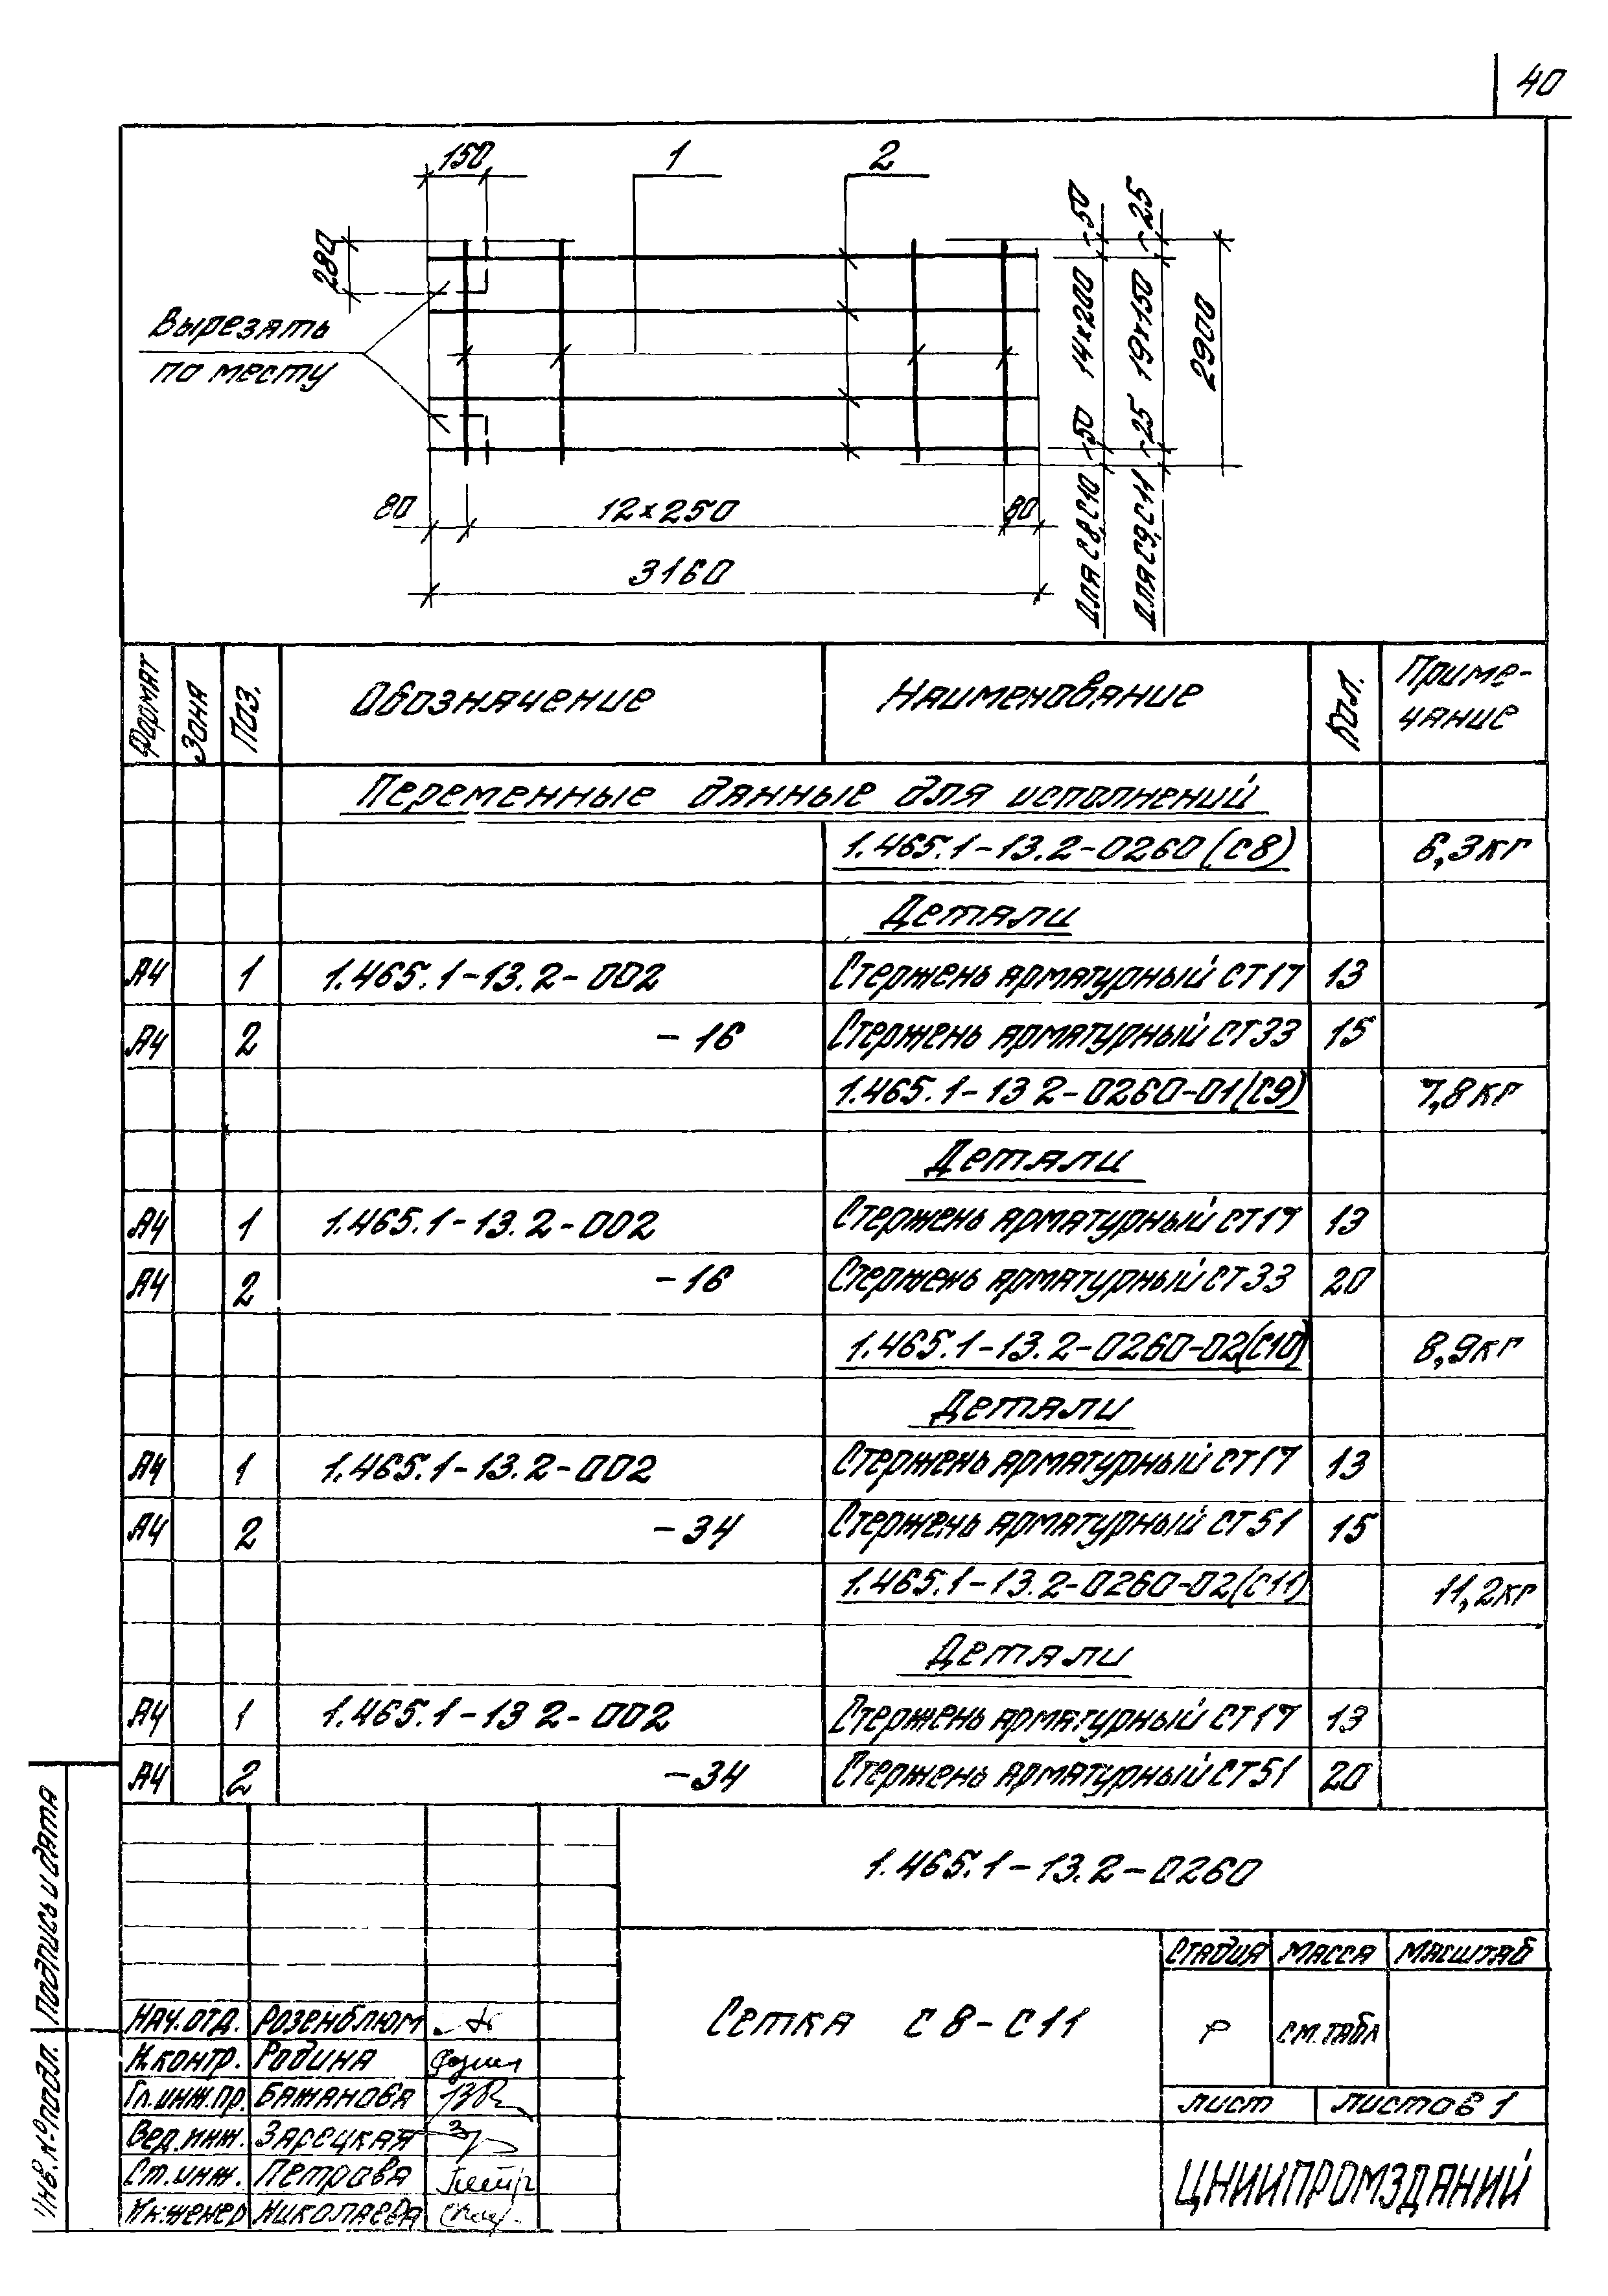 40
150
1
2
280
Вырезать
по месту
80
12×250
80
3160
Для С8, С10 50 14×200 50
Для С9, С11 25 19×150 25
2900
Формат Зона Поз. Обозначение Наименование Кол. Приме-
чание
Переменные данные для исполнений
1.465.1-13.2-0260 (С8) 6,3кг
Детали
А4 1 1.465.1-13.2-002 Стержень арматурный СТ17 13
А4 2 -16 Стержень арматурный СТ33 15
1.465.1-13 2-0260-01(С9) 7,8кг
Детали
А4 1 1.465.1-13.2-002 Стержень арматурный СТ17 13
А4 2 -16 Стержень арматурный СТ33 20
1.465.1-13.2-0260-02(С10) 8,9кг
Детали
А4 1 1.465.1-13.2-002 Стержень арматурный СТ17 13
А4 2 -34 Стержень арматурный СТ51 15
1.465.1-13.2-0260-02(С11) 11,2кг
Детали
А4 1 1.465.1-13 2-002 Стержень арматурный СТ17 13
А4 2 -34 Стержень арматурный СТ51 20
Подпись и дата
Инв.№подл.
1.465.1-13.2-0260
Сетка С8-С11
Стадия Масса Масштаб
Р см.табл
Лист Листов 1
ЦНИИПРОМЗДАНИЙ
Нач.отд. Розенблюм
Н.контр. Родина
Гл.инж.пр. Бажанова
Вед.инж. Зарецкая
Ст.инж. Петрова
Инженер Николаева